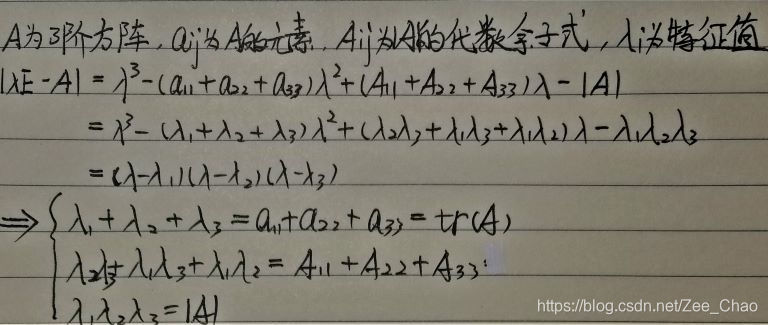 A为3阶方阵，aij为A的元素，Aij为A的代数余子式，λi为特征值
|λE-A| = λ³-(a₁₁+a₂₂+a₃₃)λ²+(A₁₁+A₂₂+A₃₃)λ-|A|
= λ³-(λ₁+λ₂+λ₃)λ²+(λ₂λ₃+λ₁λ₃+λ₁λ₂)λ-λ₁λ₂λ₃
= (λ-λ₁)(λ-λ₂)(λ-λ₃)
⇒ { λ₁+λ₂+λ₃ = a₁₁+a₂₂+a₃₃ = tr(A)
λ₂λ₃+λ₁λ₃+λ₁λ₂ = A₁₁+A₂₂+A₃₃
λ₁λ₂λ₃ = |A|
https://blog.csdn.net/Zee_Chao